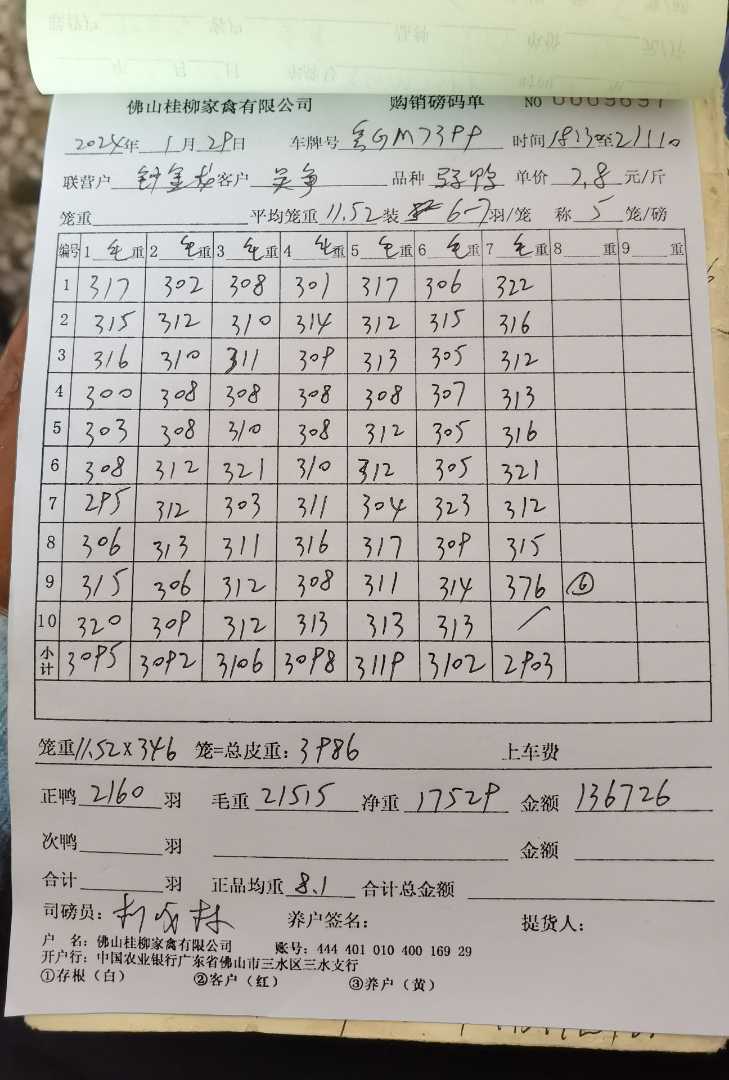 佛山桂柳家禽有限公司 购销磅码单 NO 0009697
2024年 1月29日 车牌号 GM7399 时间1823至21110
联营户 客户 吴争 品种 单价 7.8 元/斤
笼重 平均笼重 11.52 装 6-7 羽/笼 称 5 笼/磅
编号 1 毛重 2 毛重 3 毛重 4 毛重 5 毛重 6 毛重 7 毛重 8 重 9 重
1 317 302 308 301 317 306 322
2 315 312 310 314 312 315 316
3 316 310 311 309 313 305 312
4 300 308 308 308 308 307 313
5 303 308 310 308 312 305 316
6 308 312 321 310 312 305 321
7 295 312 303 311 304 323 312
8 306 313 311 316 317 309 315
9 315 306 312 308 311 314 376 ⑥
10 320 309 312 313 313 313 /
小计 3095 3092 3106 3098 3119 3102 2903
笼重11.52X346 笼=总皮重: 3986 上车费
正鸭 2160 羽 毛重 21515 净重 17529 金额 136726
次鸭 羽 金额
合计 羽 正品均重 8.1 合计总金额
司磅员: 养户签名: 提货人:
户 名: 佛山桂柳家禽有限公司 账号: 444 401 010 400 169 29
开户行: 中国农业银行广东省佛山市三水区三水支行
①存根(白) ②客户(红) ③养户(黄)